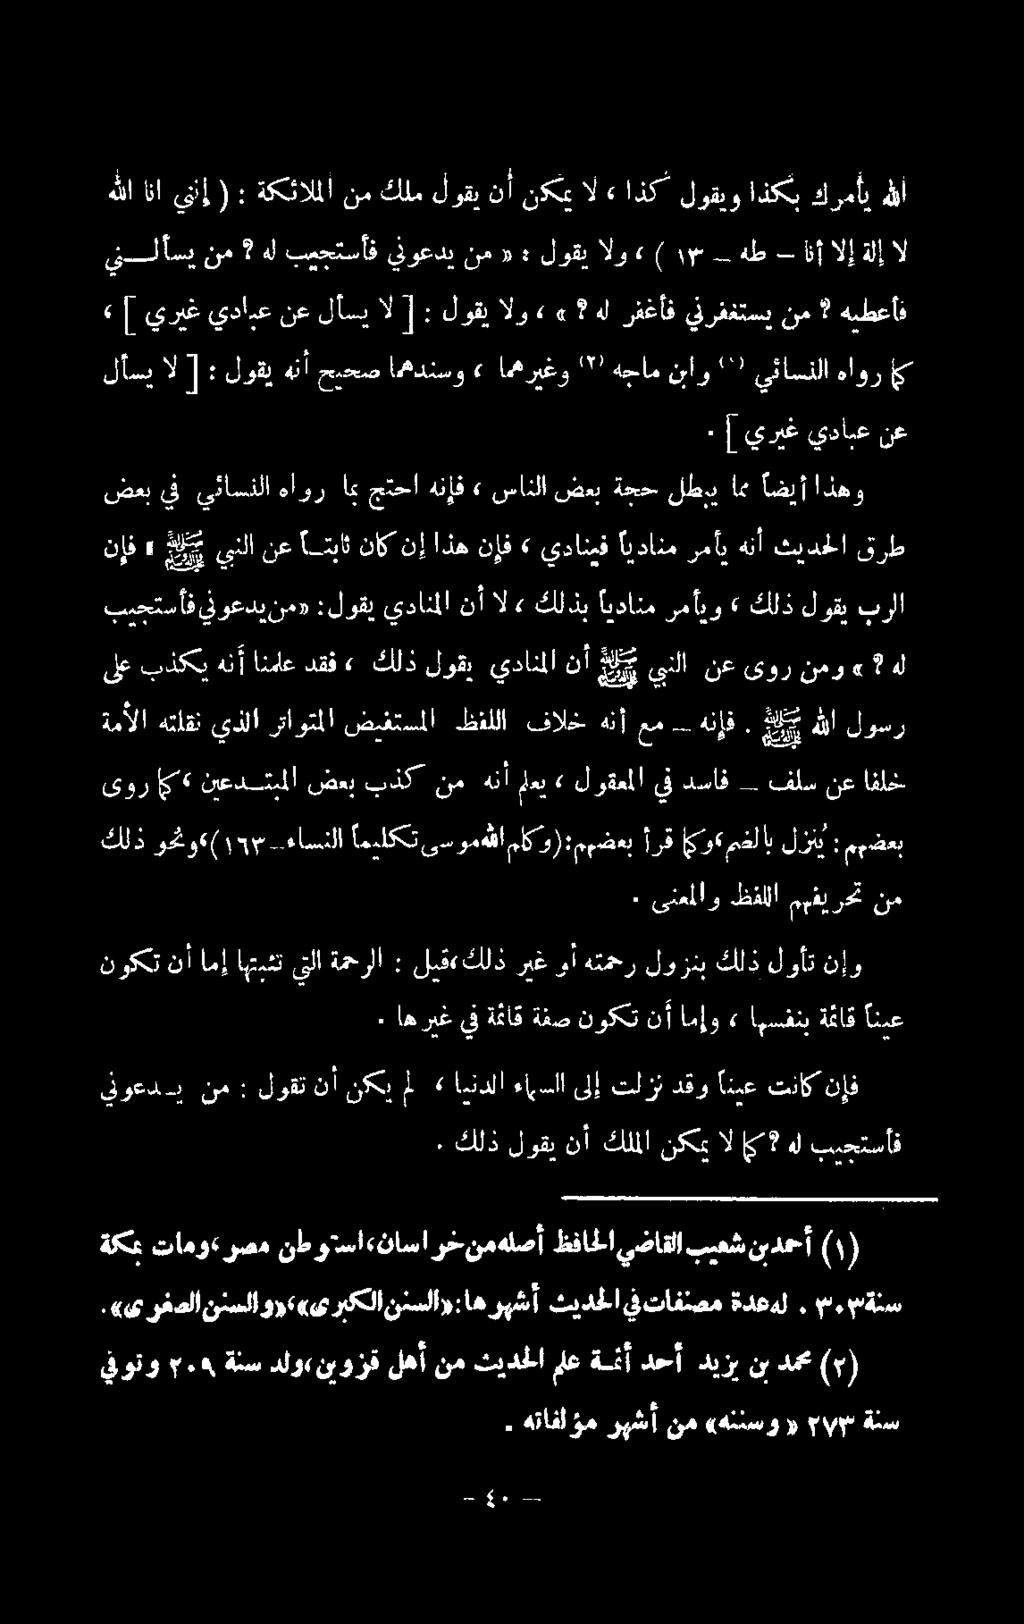 الله يأمرك بكذا ويقول كذا ، لا يمكن أن يقول ملك من الملائكة : ( إنني انا الله
لا إلة إلا أنا – طه – ١٣ ) ، ولا يقول : « من يدعوني فأستجيب له ? من يسألـــني
فأعطيه ? من يستغفرني فأغفر له ? » ، ولا يقول : [ لا يسأل عن عبادي غيري ] ،
كما رواه النسائي (١) وابن ماجه (٢) وغيرهما ، وسندهما صحيح أنه يقول : [ لا يسأل
عن عبادي غيري ] .
وهذا أيضاً مما يبطل حجة بعض الناس ، فإنه احتج بما رواه النسائي في بعض
طرق الحديث أنه يأمر منادياً فينادي ، فإن هذا إن كان ثابتـاً عن النبي ﷺ ، فإن
الرب يقول ذلك ، ويأمر منادياً بذلك ، لا أن المنادي يقول: «من يدعوني فأستجيب
له ? » ومن روى عن النبي ﷺ أن المنادي يقول ذلك ، فقد علمنا أنه يكذب على
رسول الله ﷺ . فإنه – مع أنه خلاف اللفظ المستفيض المتواتر الذي نقلته الأمة
خلفا عن سلف – فاسد في المعقول ، يعلم أنه من كذب بعض المبتـدعين ، كما روى
بعضهم : يُنزل بالضم ، وكما قرأ بعضهم : ( وكلم الله موسى تكليماً النساء – ١٦٣ ) ، ونحو ذلك
من تحريفهم اللفظ والمعنى .
وإن تأول ذلك بنزول رحمته أو غير ذلك ، قيل : الرحمة التي تثبتها إما أن تكون
عيناً قائمة بنفسها ، وإما أن تكون صفة قائمة في غيرها .
فإن كانت عيناً وقد نزلت إلى السماء الدنيا ، لم يكن أن تقول : من يـدعوني
فأستجيب له ? كما لا يمكن الملك أن يقول ذلك .
(١) أحمد بن شعيب القاضي الحافظ أصله من خراسان ، استوطن مصر ، ومات بمكة
سنة ٣٠٣ . له عدة مصنفات في الحديث أشهرها : «السنن الكبرى» ، «والسنن الصغرى» .
(٢) محمد بن يزيد أحد أئمـة علم الحديث من أهل قزوين ، ولد سنة ٢٠٩ وتوفي
سنة ٢٧٣ « وسننه» من أشهر مؤلفاته .
– ٤٠ –